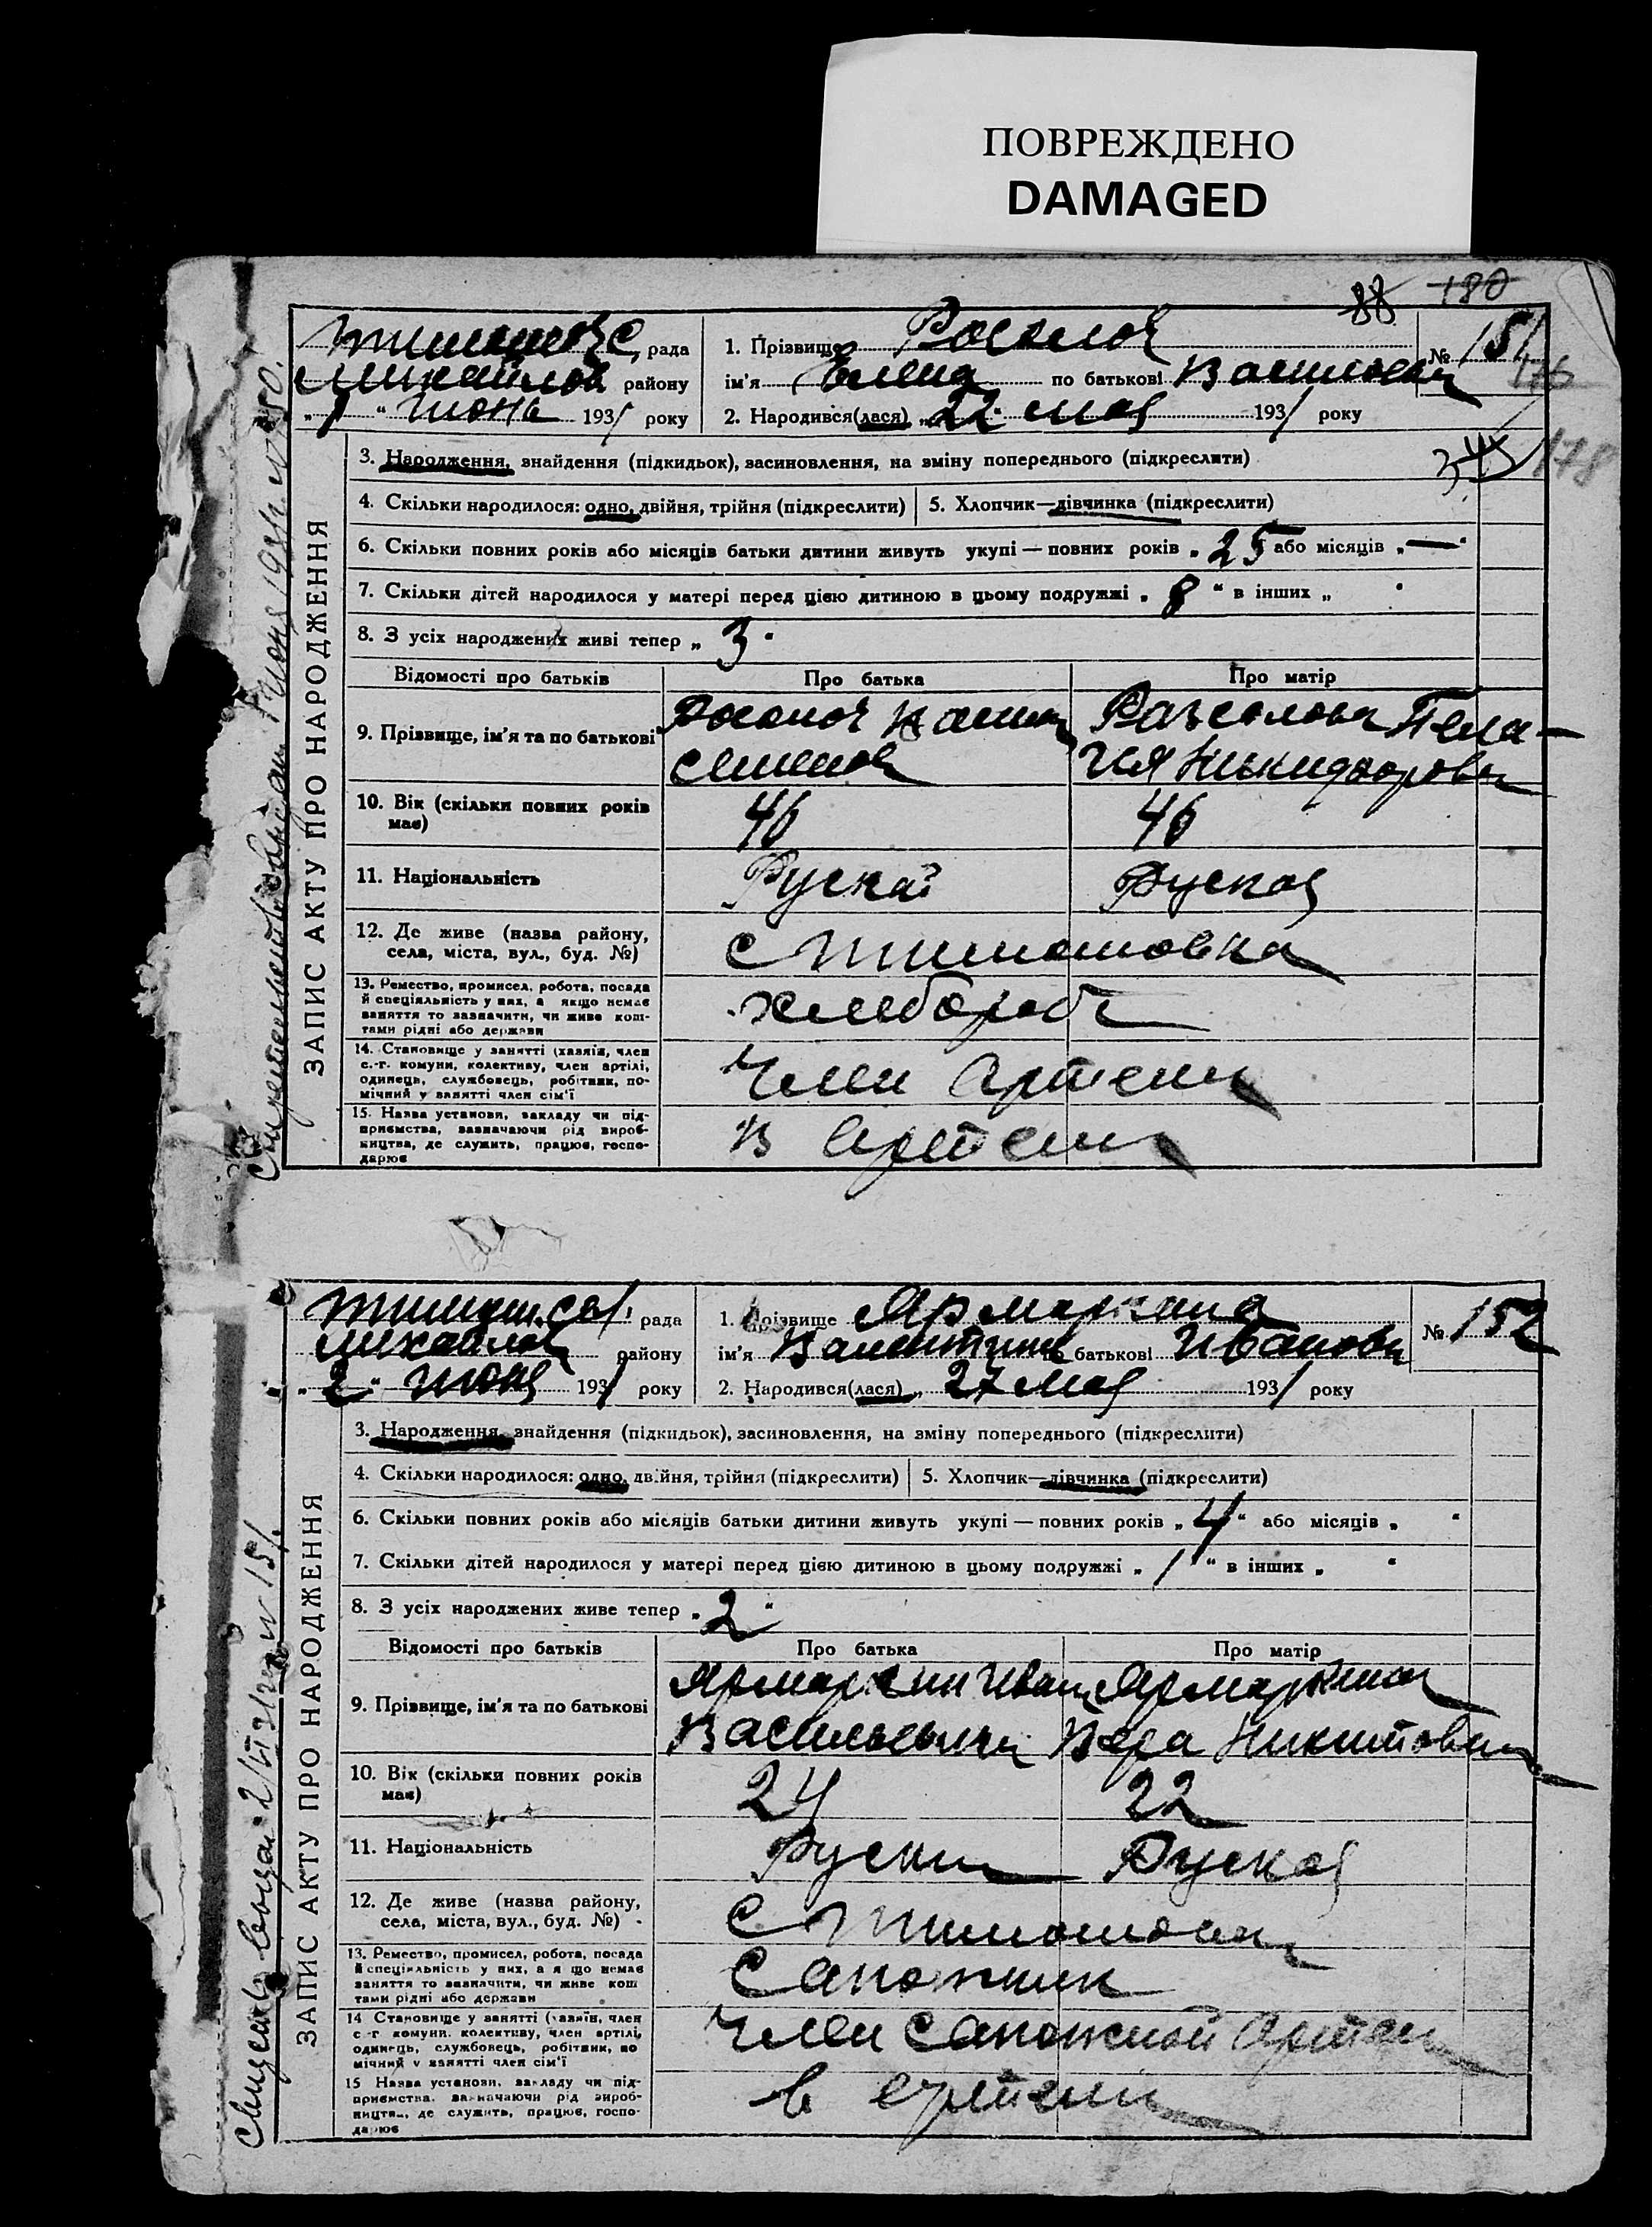 ПОВРЕЖДЕНО
DAMAGED
88 180
рада
Михайлов району
"1" июня 1931 року
1. Прізвище
ім'я Елена по батькові Васильевна
2. Народився(лася) „22" мая 1931 року
№ 151
176
345 178
ЗАПИС АКТУ ПРО НАРОДЖЕННЯ
3. Народження, знайдення (підкидьок), засиновлення, на зміну попереднього (підкреслити)
4. Скільки народилося: одно, двійня, трійня (підкреслити)
5. Хлопчик—дівчинка (підкреслити)
6. Скільки повних років або місяців батьки дитини живуть укупі — повних років „ 25 або місяців „ — "
7. Скільки дітей народилося у матері перед цією дитиною в цьому подружжі „ 8 " в інших „ "
8. З усіх народжених живі тепер „ 3 "
Відомості про батьків
Про батька
Про матір
9. Прізвище, ім'я та по батькові
Пела-
гия Никифоровн
10. Вік (скільки повних років
має)
46
46
11. Національність
Руской
Руская
12. Де живе (назва району,
села, міста, вул., буд. №)
с Тимошовка
13. Ремество, промисел, робота, посада
й спеціяльність у них, а якщо немає
заняття то зазначити, чи живе кош-
тами рідні або держави
хлебороб
14. Становище у занятті (хазяїн, член
с.-г. комуни, колективу, член артілі,
одинець, службовець, робітник, по-
мічний у занятті член сім'ї
Член Артели
15. Назва установи, закладу чи під-
приємства, зазначаючи рід вироб-
ництва, де служить, працює, госпо-
дарює
в Артели
Тимош. с/с рада
Михайлов району
„2" июня 1931 року
1. Прізвище Ярмаркина
ім'я Валентина батькові Ивановн
2. Народився(лася) „ 27 мая 1931 року
№ 152
ЗАПИС АКТУ ПРО НАРОДЖЕННЯ
3. Народження, знайдення (підкидьок), засиновлення, на зміну попереднього (підкреслити)
4. Скільки народилося: одно, двійня, трійня (підкреслити)
5. Хлопчик—дівчинка (підкреслити)
6. Скільки повних років або місяців батьки дитини живуть укупі — повних років „ 4 " або місяців „ "
7. Скільки дітей народилося у матері перед цією дитиною в цьому подружжі „ 1 " в інших „ "
8. З усіх народжених живе тепер „ 2 "
Відомості про батьків
Про батька
Про матір
9. Прізвище, ім'я та по батькові
Ярмаркин Иван
Васильевич
Ярмаркина
Вера Никитовна
10. Вік (скільки повних років
має)
24
22
11. Національність
Руский
Руская
12. Де живе (назва району,
села, міста, вул., буд. №)
с Тимошовка
13. Ремество, промисел, робота, посада
й спеціяльність у них, а якщо немає
заняття то зазначити, чи живе кош
тами рідні або держави
Сапожник
14 Становище у занятті (хазяїн, член
с-г комуни, колективу, член артілі,
одинець, службовець, робітник, по
мічний у занятті член сім'ї
Член Сапожной Артели
15 Назва установи, закладу чи під-
приємства, зазначаючи рід вироб-
ництва, де служить, працює, госпо-
дарює
в артели